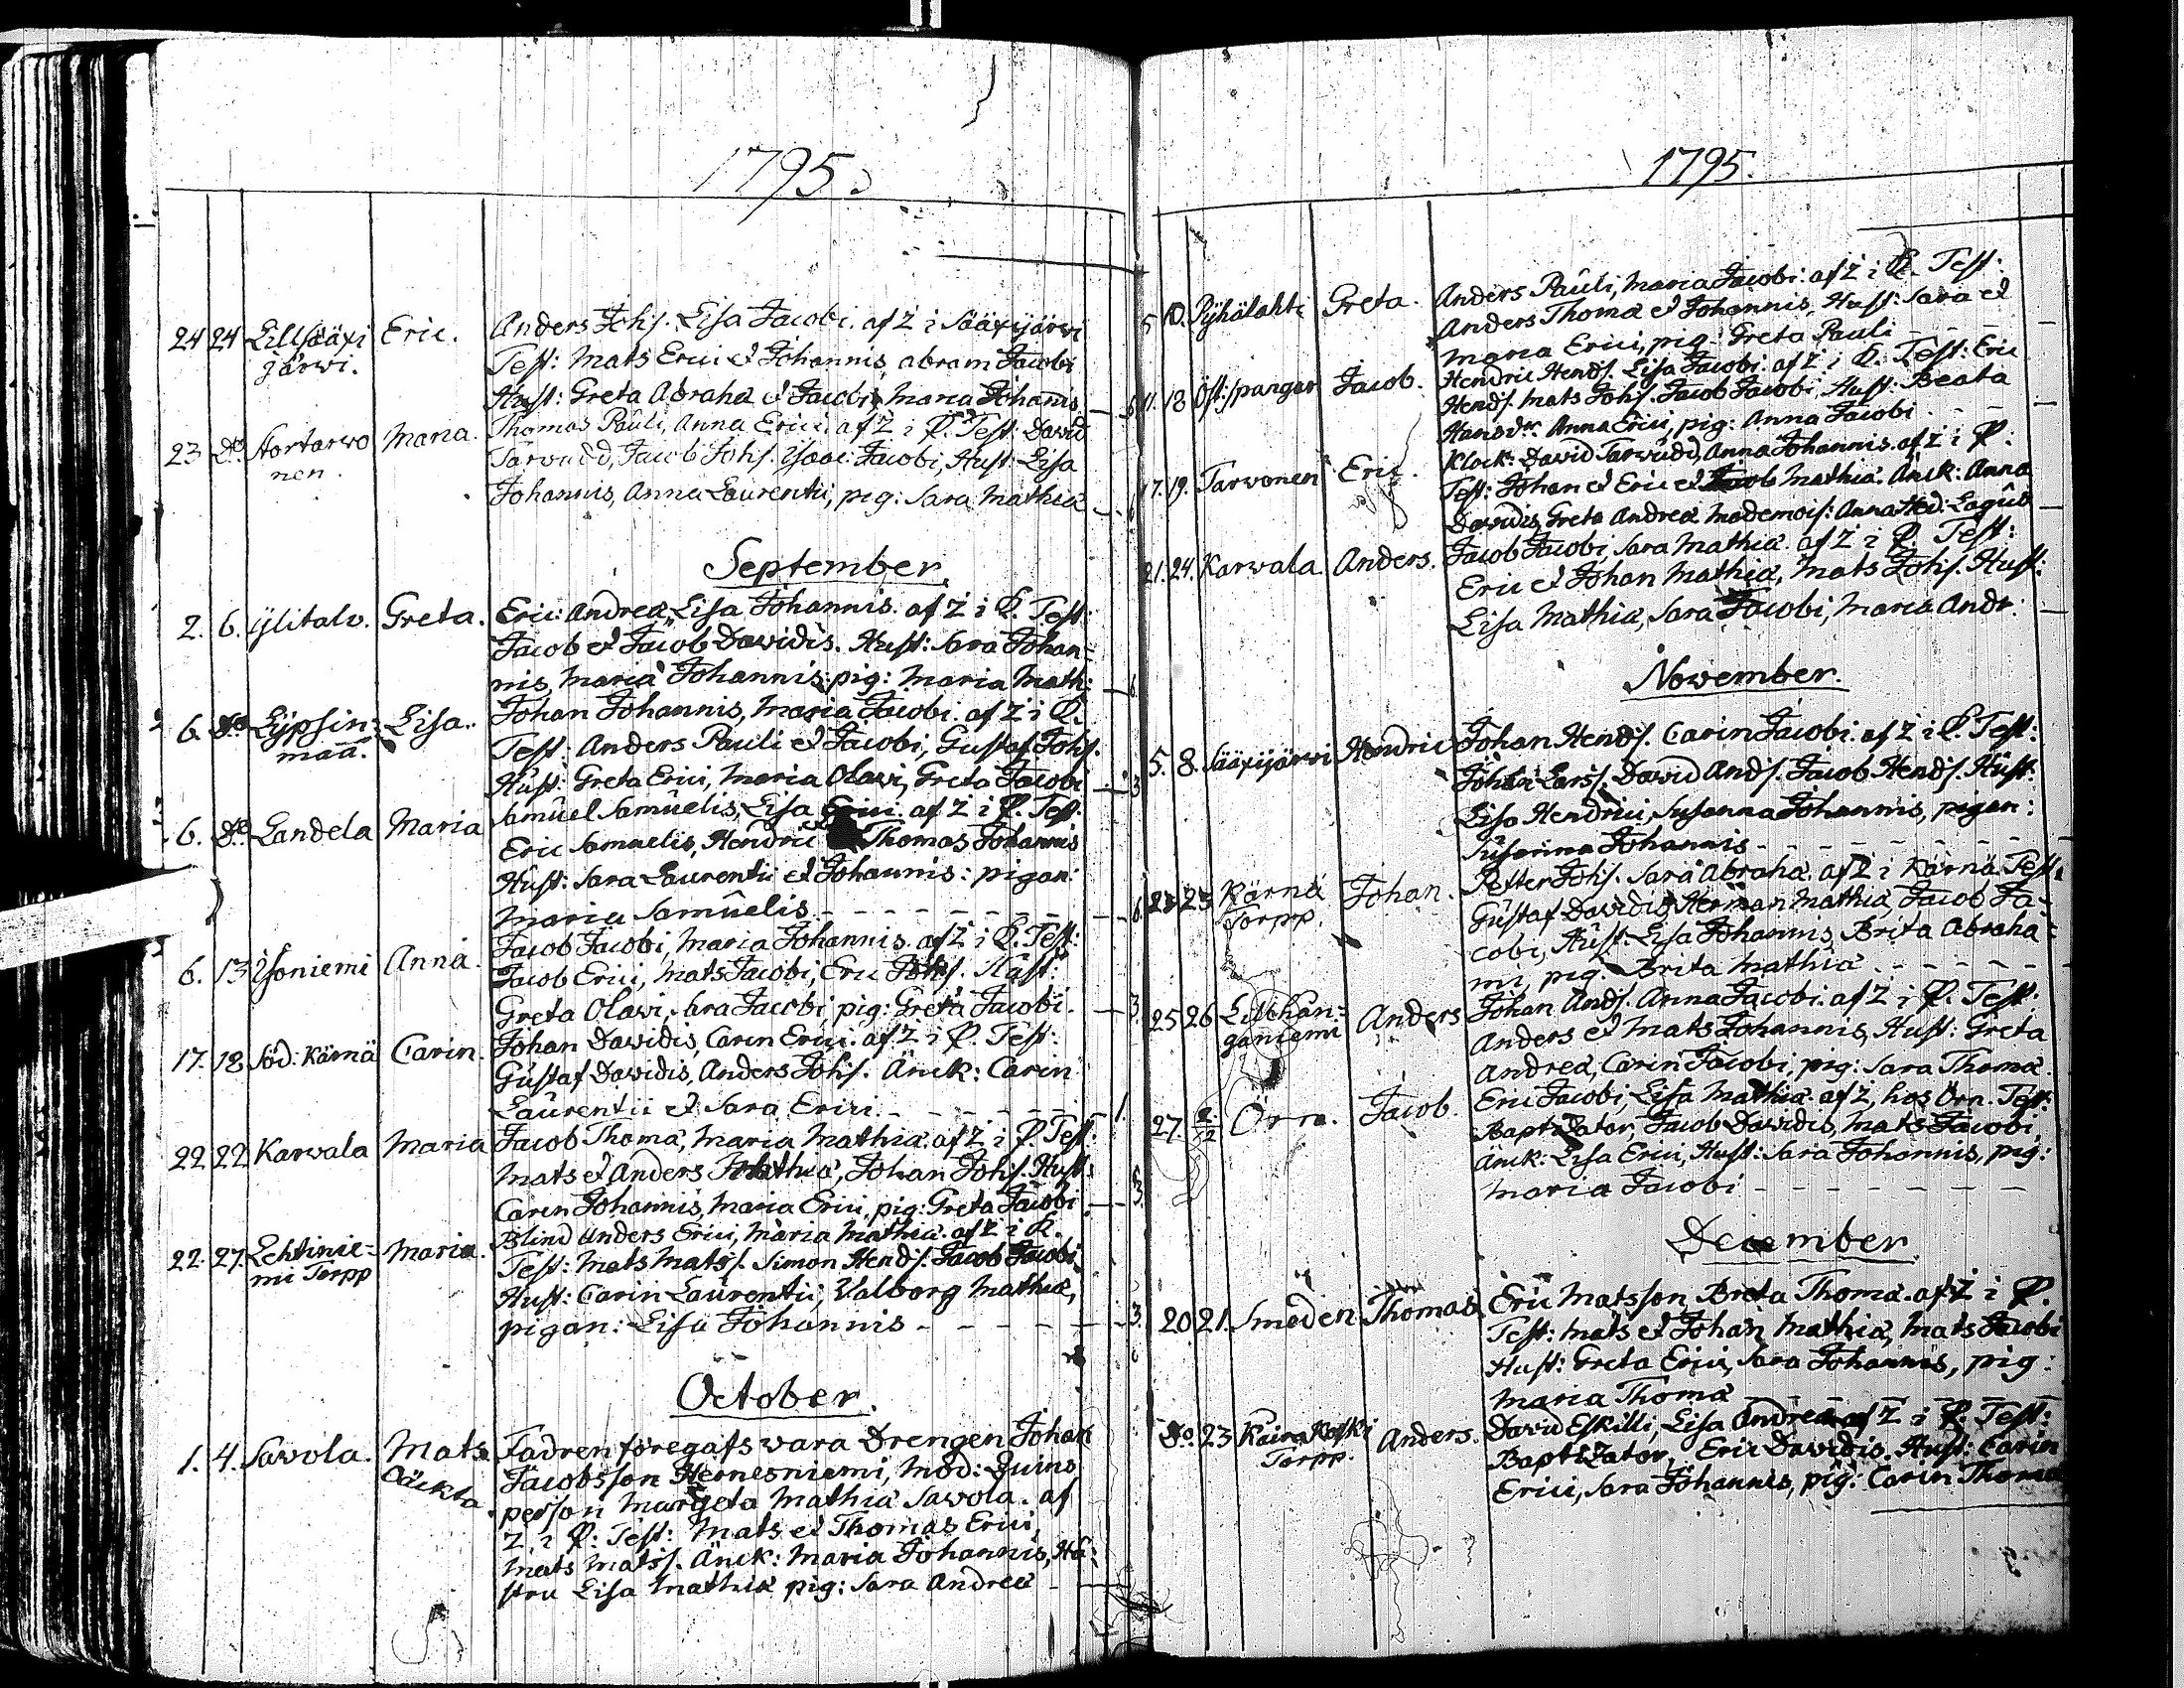 1795.
24 24 Lillsääxi Eric. Anders Johs. Lisa Jacobi. af Z i Sääxijärvi
järwi. Test: Mats Erici et Johannis, abram Jacobi
Hust: Greta Abraha et Jacobi, Maria Johannis
23 do Stortarwo Maria. Thomas Pauli, Anna Erici. af Z i P. Test: David
nen. Tarvudd, Jacob Johs. Isaac Jacobi, Hust: Lisa
Johannis, Anna Laurentii, pig: Sara Mathiæ
September.
2. 6. Ylitalo. Greta. Eric Andreæ, Lisa Johannis. af Z i P. Test:
Jacob et Jacob Davidis. Hust: Sara Johan=
nis, Maria Johannis, pig: Maria Math:
6. do Lypsin= Lisa. Johan Johannis, Maria Jacobi. af Z i P.
maa. Test: Anders Pauli et Jacobi, Gustaf Johs.
Hust: Greta Erici, Maria Olavi, Greta Jacobi 3
6. do Landela Maria Samuel Samuelis, Lisa Erici af Z i P. Test:
Eric Samuelis, Hendric Thomas Johannis
Hust: Sara Laurentii et Johannis: pigan:
Maria Samuelis
6. 13 Isoniemi Anna. Jacob Jacobi, Maria Johannis. af Z i P. Test:
Jacob Erici, Mats Jacobi, Eric Johs. Hust:
Greta Olavi, Sara Jacobi, pig: Greta Jacobi. 3.
17. 18 Söd: Kärnä Carin. Johan Davidis, Carin Erici. af Z i P. Test:
Gustaf Davidis, Anders Johs. Änck: Carin
Laurentii et Sara Erici 1.
22 22 Karvala Maria Jacob Thomæ, Maria Mathiæ. af Z i P. Test:
Mats et Anders Mathiæ, Johan Johs. Hust:
Carin Johannis, Maria Erici, pig: Greta Jacobi
22. 27. Lehtinie= Maria. Blind Anders Erici, Maria Mathiæ. af Z i P.
mi Torpp Test: Mats Matss. Simon Hends. Jacob Jacobi
Hust: Carin Laurentii, Valborg Mathiæ,
pigan: Lisa Johannis 3.
October.
1. 4. Savola. Mats Fadren föregafs vara Drengen Johan
Oäckta. Jacobsson Hernesniemi, Mod: Quins
person Margeta Mathiæ Savola. af
Z i P: Test: Mats et Thomas Erici,
Mats Matss. Änck: Maria Johannis, Hu:
stru Lisa Mathiæ pig: Sara Andreæ
1795.
5 10. Pyhälahti Greta. Anders Pauli, Maria Jacobi. af Z i P. Test:
Anders Thomæ et Johannis, Hust: Sara et
Maria Erici, pig: Greta Pauli
11. 18 Öst: spangar Jacob. Hendric Hends. Lisa Jacobi. af Z i P. Test: Eric
Hends. Mats Johs. Jacob Jacobi, Hust: Beata
Hansdr. Anna Erici, pig: Anna Jacobi
17. 19. Tarvonen Eric. Klock: David Tarvudd, Anna Johannis. af Z i P.
Test: Johan et Eric et Jacob Mathiæ. Änck: Anna
Davidis, Greta Andreæ Mademois: Anna Hed: Lagus
21. 24. Karvala Anders. Jacob Jacobi, Sara Mathiæ. af Z i P. Test:
Eric et Johan Mathiæ, Mats Johs. Hust:
Lisa Mathiæ, Sara Jacobi, Maria Andr:
November.
5. 8. Sääxijärvi Hendric Johan Hends. Carin Jacobi. af Z i P. Test:
Johan Larss. David Ands. Jacob Hends. Hust:
Lisa Hendrici, Susanna Johannis, pigan:
Susanna Johannis
23 23 Kärnä Johan. Petter Johs. Sara Abraha. af Z i Kärnä Test.
Torpp. Gustaf Davidis, Herman Mathiæ, Jacob Ja-
cobi, Hust: Lisa Johannis, Brita Abraha=
mi, pig: Brita Mathiæ
25 26 Anders Johan Ands. Anna Jacobi. af Z i P. Test:
ganiemi Anders et Mats Johannis, Hust: Greta
Andreæ, Carin Jacobi, pig: Sara Thomæ
27. 2/12 Örn. Jacob. Eric Jacobi, Lisa Mathiæ. af Z, hos Örn. Test:
Baptizator, Jacob Davidis, Mats Jacobi,
Änck: Lisa Erici, Hust: Sara Johannis, pig:
Maria Jacobi
December.
20 21. Smeden Thomas Eric Matsson, Breta Thomæ. af Z i P.
Test: Mats et Johan Mathiæ, Mats Jacobi
Hust: Greta Erici, Sara Johannis, pig:
Maria Thomæ
do 23 Kaira Koski Anders. David Eskilli, Lisa Andreæ af Z i P. Test:
Torpp. Baptizator, Eric Davidis. Hust: Carin
Erici, Sara Johannis, pig: Carin Thomæ